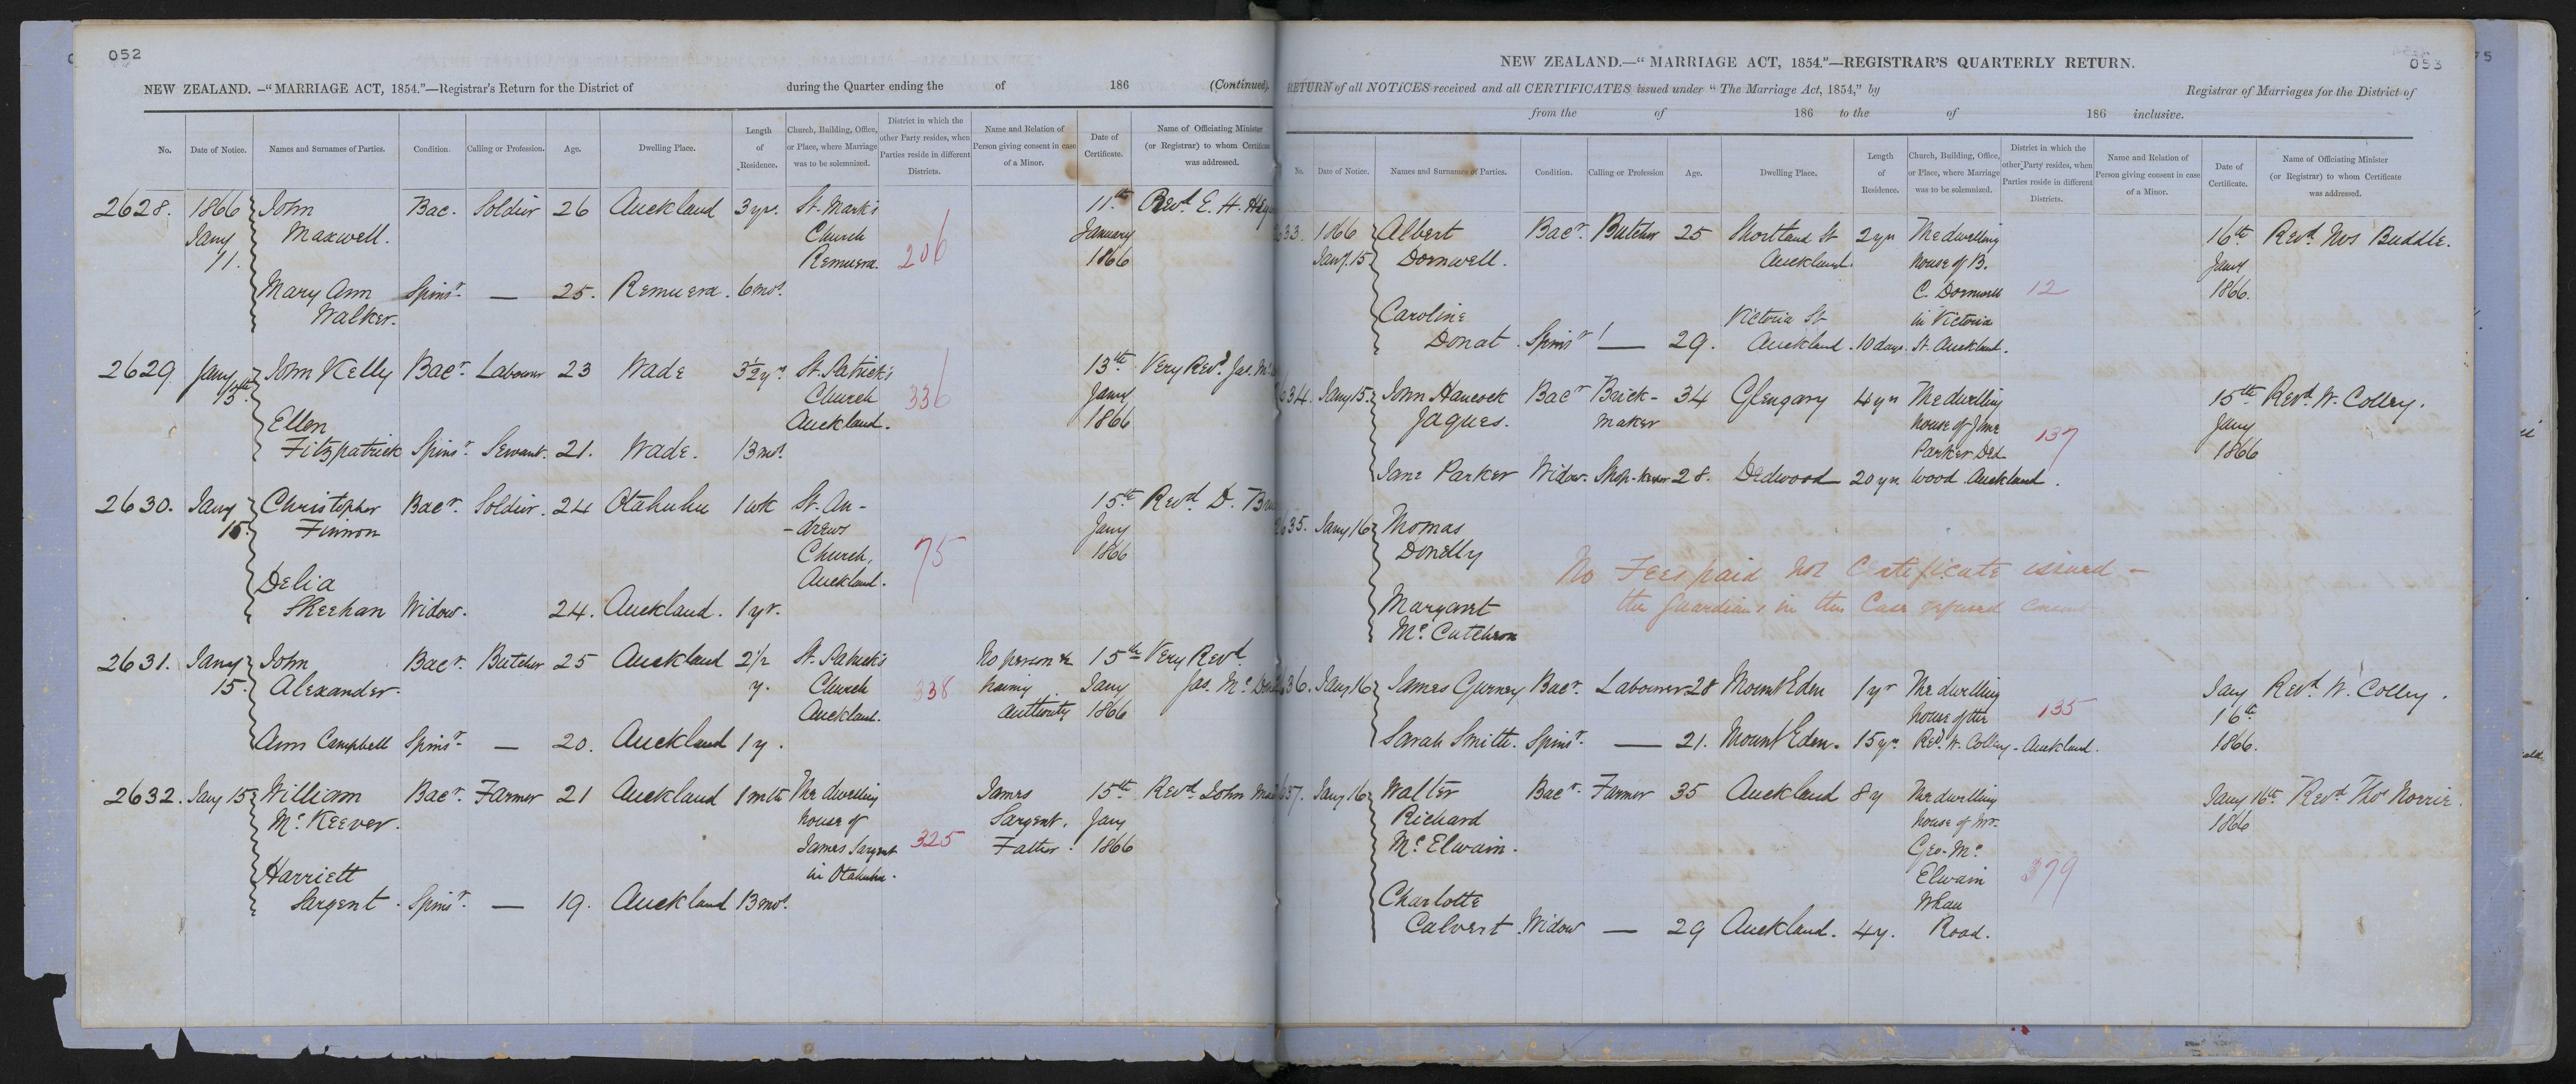 052
NEW ZEALAND.—"MARRIAGE ACT, 1854."—Registrar's Return for the District of during the Quarter ending the of 186 (Continued).
No. Date of Notice. Names and Surnames of Parties. Condition. Calling or Profession. Age. Dwelling Place. Length of Residence. Church, Building, Office, or Place, where Marriage was to be solemnized. District in which the other Party resides, when Parties reside in different Districts. Name and Relation of Person giving consent in case of a Minor. Date of Certificate. Name of Officiating Minister (or Registrar) to whom Certificate was addressed.
2628. 1866 John Bac. Soldier 26 Auckland 3 yrs. St. Mark's 11th Revd. E. H.
Jany Maxwell. Church January
11. Remuera. 206 1866
Mary Ann Spinsr. — 25. Remuera. 6 mos.
Walker.
2629 Jany John Kelly Bacr. Labourer 23 Wade 3½ yrs. St. Patrick's 13th Very Revd. Jas. Mc
13th Church 336 Jany
Ellen Auckland. 1866
Fitzpatrick Spinsr. Servant. 21. Wade. 13 mos.
2630. Jany Christopher Bacr. Soldier. 24 Otahuhu 1 wk St. An- 15th Revd. D.
15. Finnon -drews Jany
Church, 75 1866
Delia Auckland.
Sheehan Widow. 24. Auckland. 1 yr.
2631. Jany John Bacr. Butcher 25 Auckland 2 1/2 St. Patrick's No person 15th Very Revd.
15. Alexander. y. Church 338 having Jany Jas. Mc
Auckland. authority 1866
Ann Campbell Spinsr. — 20. Auckland 1 y.
2632. Jany 15 William Bacr. Farmer 21 Auckland 1 mth The dwelling James 15th Revd. John
Mc. Keever. house of Sargent. Jany
James Sargent 325 Father. 1866
Harriett in Otahuhu.
Sargent. Spinsr. — 19. Auckland 13 mos.
053
NEW ZEALAND.—"MARRIAGE ACT, 1854."—REGISTRAR'S QUARTERLY RETURN.
RETURN of all NOTICES received and all CERTIFICATES issued under "The Marriage Act, 1854," by Registrar of Marriages for the District of
from the of 186 to the of 186 inclusive.
No. Date of Notice. Names and Surnames of Parties. Condition. Calling or Profession Age. Dwelling Place. Length of Residence. Church, Building, Office, or Place, where Marriage was to be solemnized. District in which the other Party resides, when Parties reside in different Districts. Name and Relation of Person giving consent in case of a Minor. Date of Certificate. Name of Officiating Minister (or Registrar) to whom Certificate was addressed.
633. 1866 Albert Bacr. Butcher 25 Shortland St 2 yrs The dwelling 16th Revd. Thos Buddle.
Jany. 15 Dornwell. Auckland. house of B. Jany
C. Dornwell 12 1866.
Caroline Victoria St in Victoria
Donat. Spinsr — 29. Auckland. 10 days. St. Auckland.
634. Jany 15. John Hancock Bacr Brick- 34 Glengary 4 yrs The dwelling 15th Revd. W. Colley.
Jaques. maker house of Jane 137 Jany
Parker Ded- 1866
Jane Parker Widow. Shop-keeper 28. Dedwood 20 yrs. wood Auckland.
635. Jany 16 Thomas
Donelly
No Fees paid nor Certificate issued —
Margaret the Guardians in this Case refused consent
Mc. Cutcheon
636. Jany 16 James Gurney Bacr. Labourer 28 Mount Eden 1 yr The dwelling Jany Revd. W. Colley.
house of the 135 16th
Sarah Smith. Spinsr. — 21. Mount Eden. 15 yrs. Revd. W. Colley - Auckland. 1866.
637. Jany 16 Walter Bacr. Farmer 35 Auckland 8 y The dwelling Jany 16th Revd Thos Norrie.
Richard house of Mr. 1866
Mc. Elwain. Geo. Mc.
Elwain 379
Charlotte Whau
Calvert. Widow — 29 Auckland. 4 y. Road.